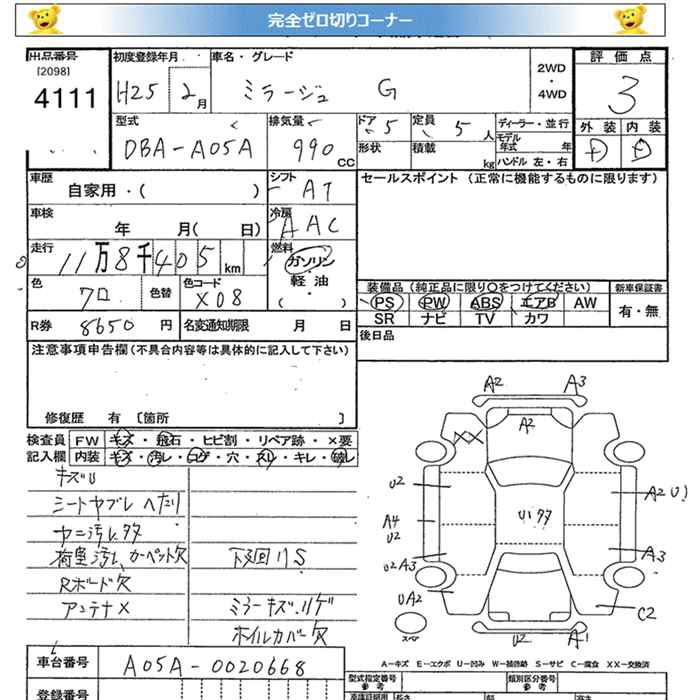 完全ゼロ切りコーナー
出品番号 初度登録年月 車名・グレード 2WD・4WD 評価点
[2098]
4111 H25 2月 ミラージュ G 3
型式 排気量 ドア 5 定員 5人 ディーラー・並行 外装 内装
DBA-A05A 990CC 形状 積載 kg モデル年式 年 D D
ハンドル 左・右
車歴 自家用・( ) シフト AT セールスポイント (正常に機能するものに限ります)
車検 年 月( 日) 冷房 AAC
走行 11万8千405km 燃料 ガソリン・軽油・( )
色 クロ 色替 色コード X08 装備品 (純正品に限り○をつけてください) 新車保証書
PS PW ABS エアB AW 有・無
SR ナビ TV カワ
R券 8650円 名変通知期限 月 日 後日品
注意事項申告欄(不具合内容等は具体的に記入して下さい)
修復歴 有 [箇所 ]
検査員 FW キズ・飛石・ヒビ割・リペア跡・×要
記入欄 内装 キズ・汚レ・コゲ・穴・スレ・キレ・破レ
キズU
シートヤブレ ヘタリ
ヤニ汚レ多
荷室汚レ、カーペット欠 下廻リS
Rボード欠
アンテナX ミラーキズ、ハゲ
ホイルカバー欠
A2 A3
A2
XX
U2 A2 U1
A4 U2 U1多
U2 A3 A3
UA2 C2
スペア U2 A1
A-キズ E-エクボ U-凹み W-補修跡 S-サビ C-腐食 XX-交換済
車台番号 A05A-0020668 型式指定番号 参考 類別区分番号 参考
登録番号 車検証期日 長さ 幅 高さ